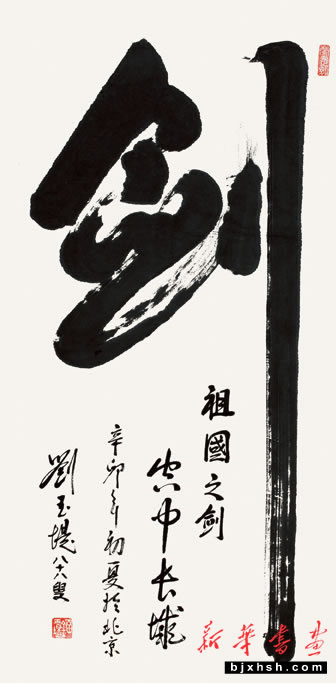 剑
祖國之剑
空中长城
辛卯年初夏於北京
劉玉堤八十八叟
新華書画
bjxhsh.com